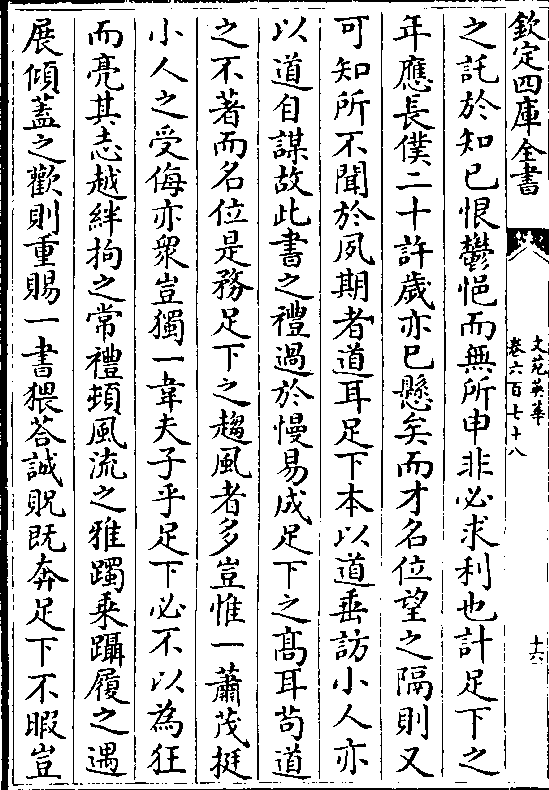 欽定四庫全書
文苑英華
卷六百七十八
十六
之託於知己恨鬱悒而無所申非必求利也計足下之
年應長僕二十許歲亦已懸矣而才名位望之隔則又
可知所不聞於夙期者道耳足下本以道垂訪小人亦
以道自謀故此書之禮過於慢易成足下之髙耳苟道
之不著而名位是務足下之趨風者多豈惟一蕭茂挺
小人之受侮亦衆豈獨一韋夫子乎足下必不以為狂
而亮其志越絆拘之常禮頓風流之雅躅乗躡履之遇
展傾蓋之歡則重賜一書猥荅誠貺既奔足下不暇豈